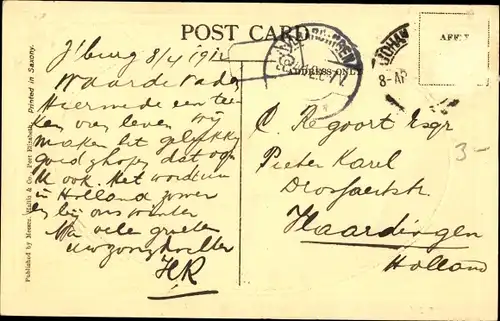 POST CARD
J'burg 8/4 1912
Waarde Vader
Hiermede een tee-
ken van leven. Wij
maken het gelukkig
goed hopen dat op
U ook. Het wordt nu
in Holland zomer
en bij ons winter
Na vele groeten
uw zoon
HR
Published by Messrs. & Co., Port Elizabeth. Printed in Saxony.
ADDRESS ONLY
JOHAN
8-AP
AFFI
C. Regoort Esqr
Pieter Karel
Drossaertstr.
Vlaardingen
Holland
3-